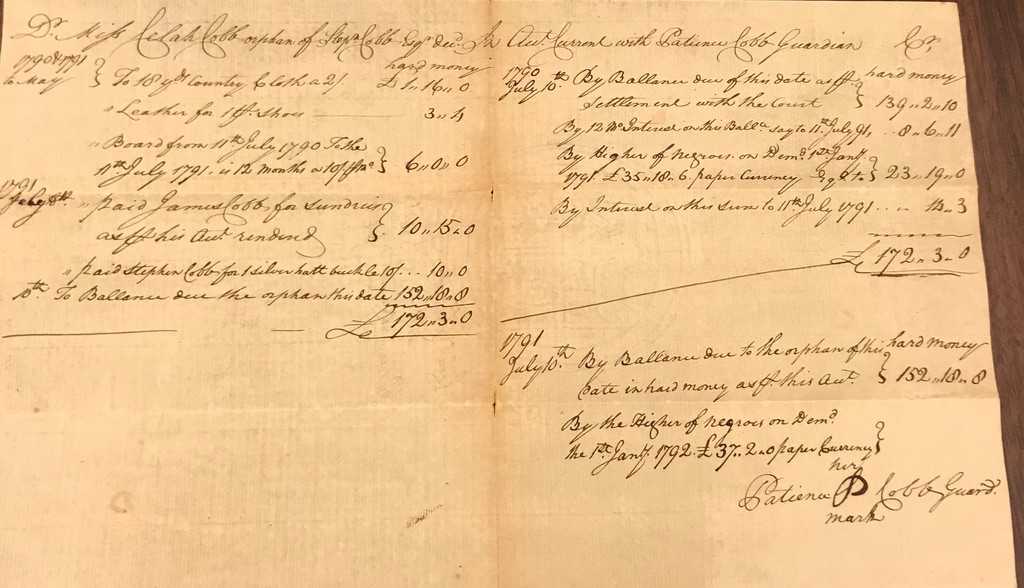 Dr. Miss Celah Cobb orphan of Stepn. Cobb Esqr. decd. In Acct. Current with Patience Cobb Guardian Cr.
hard money
1790 & 1791
to May } To 18 yds. Country Cloth a 2/ £ 1 " 16 " 0
" Leather for 1 pr. shoes 3 " 4
" Board from 11th July 1790 To the
11th July 1791. is 12 months a 10/ pr. Mo. } 6 " 0 " 0
1791
July 8th. " paid James Cobb for sundries
as pr. his Acct. renderd } 10 " 15 " 0
" paid Stephen Cobb for 1 silver hatt buckle 10/ .. 10 " 0
10th. To Ballance due the orphan this date 152 " 18 " 8
£ 172 " 3 " 0
1790
July 10th. By Ballance due of this date as pr. hard money
Settlement with the Court } 139 " 2 " 10
By 12 Mo. Interest on this Balla. say to 11th July 91, .. 8 " 6 " 11
By Higher of negroes on Demd. 1st Jany.
1791. £ 35 " 18 " 6. paper Currency Eql. to } 23 " 19 " 0
By Interest on this sum to 11th July 1791 .. .. 14 " 3
£ 172 " 3 " 0
1791
July 10th. By Ballance due to the orphan of this hard money
Date in hard money as pr. this Act. } 152 " 18 " 8
By the Higher of negroes on Demd.
the 1st. Jany. 1792. £ 37 " 2 " 0 paper Currency }
her
Patience P Cobb Guard.
mark